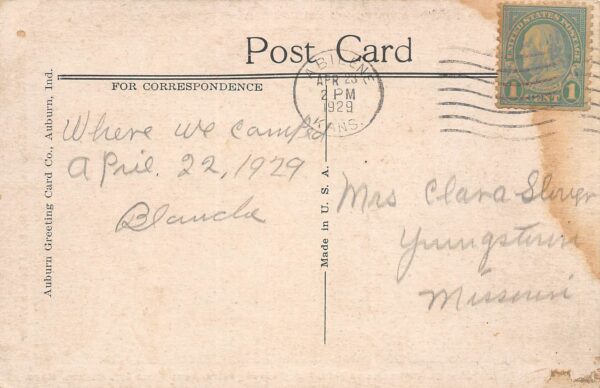 Post Card
FOR CORRESPONDENCE
UNITED STATES POSTAGE
1 CENT 1
ABILENE
APR 23
2 PM
1929
KANS.
Where we camped
April. 22, 1929
Blanche
Mrs Clara
Youngstown
Missouri
Made in U. S. A.
Auburn Greeting Card Co., Auburn, Ind.